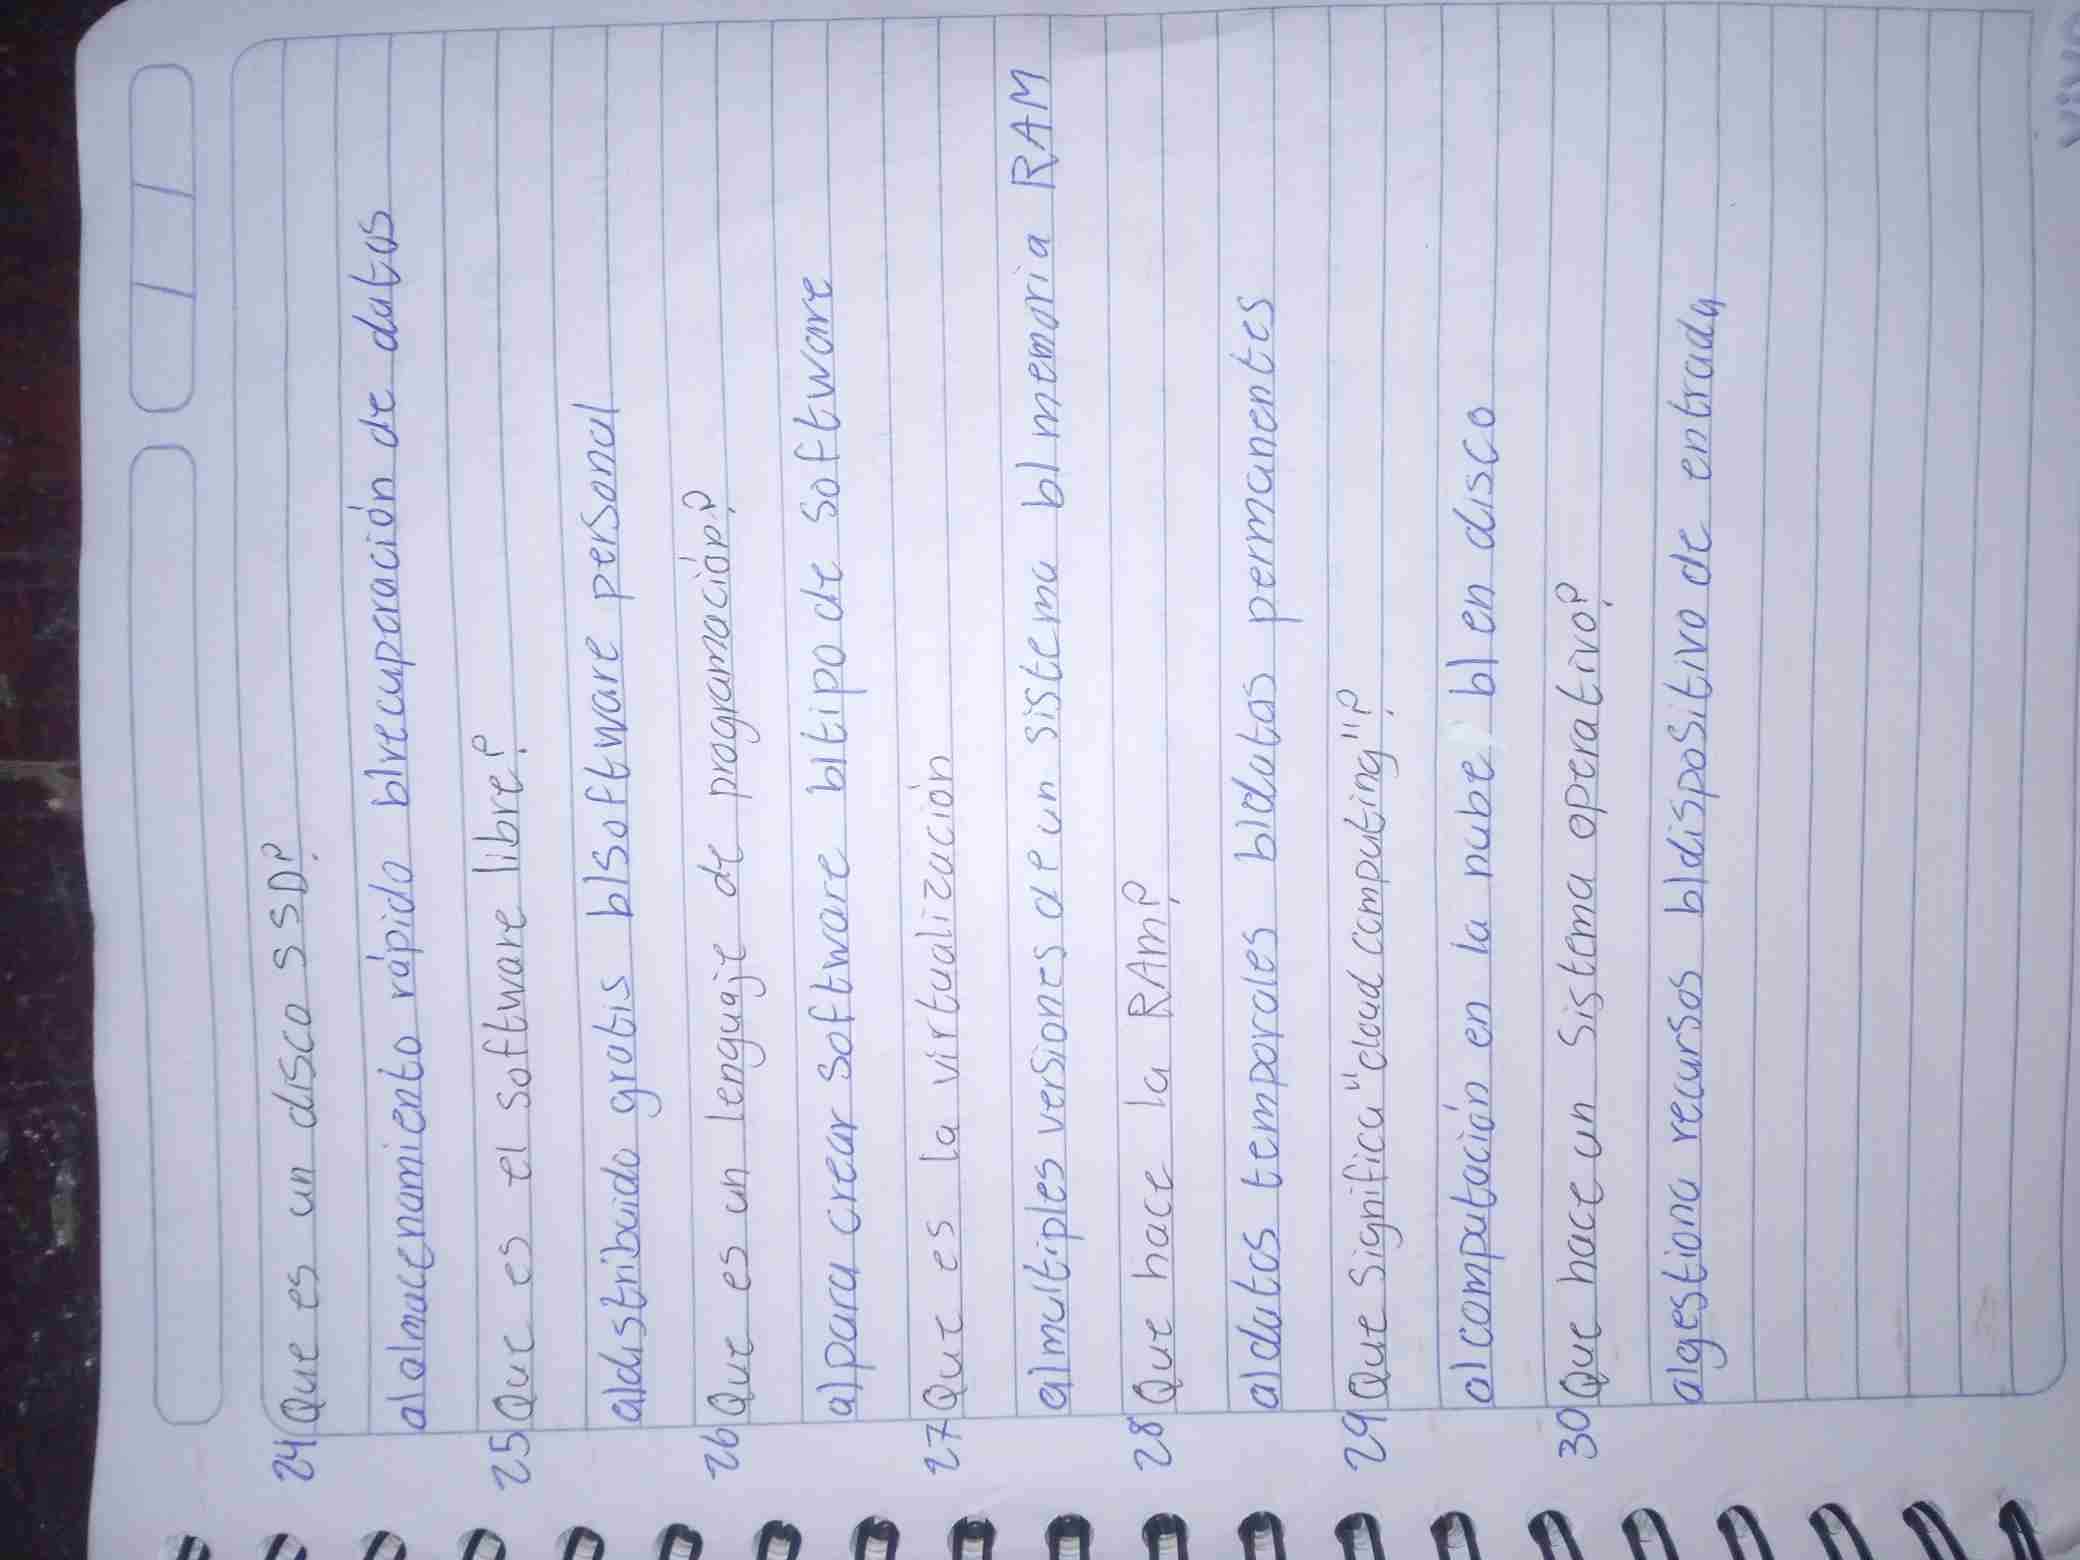 24 Que es un disco SSD?
a) almacenamiento rápido b) recuperación de datos
25 Que es el software libre?
a) distribuido gratis b) software personal
26 Que es un lenguaje de programación?
a) para crear software b) tipo de software
27 Que es la virtualización
a) multiples versiones de un sistema b) memoria RAM
28 Que hace la RAM?
a) datos temporales b) datos permanentes
29 Que significa "cloud computing"?
a) computación en la nube b) en disco
30 Que hace un sistema operativo?
a) gestiona recursos b) dispositivo de entrada
vivo